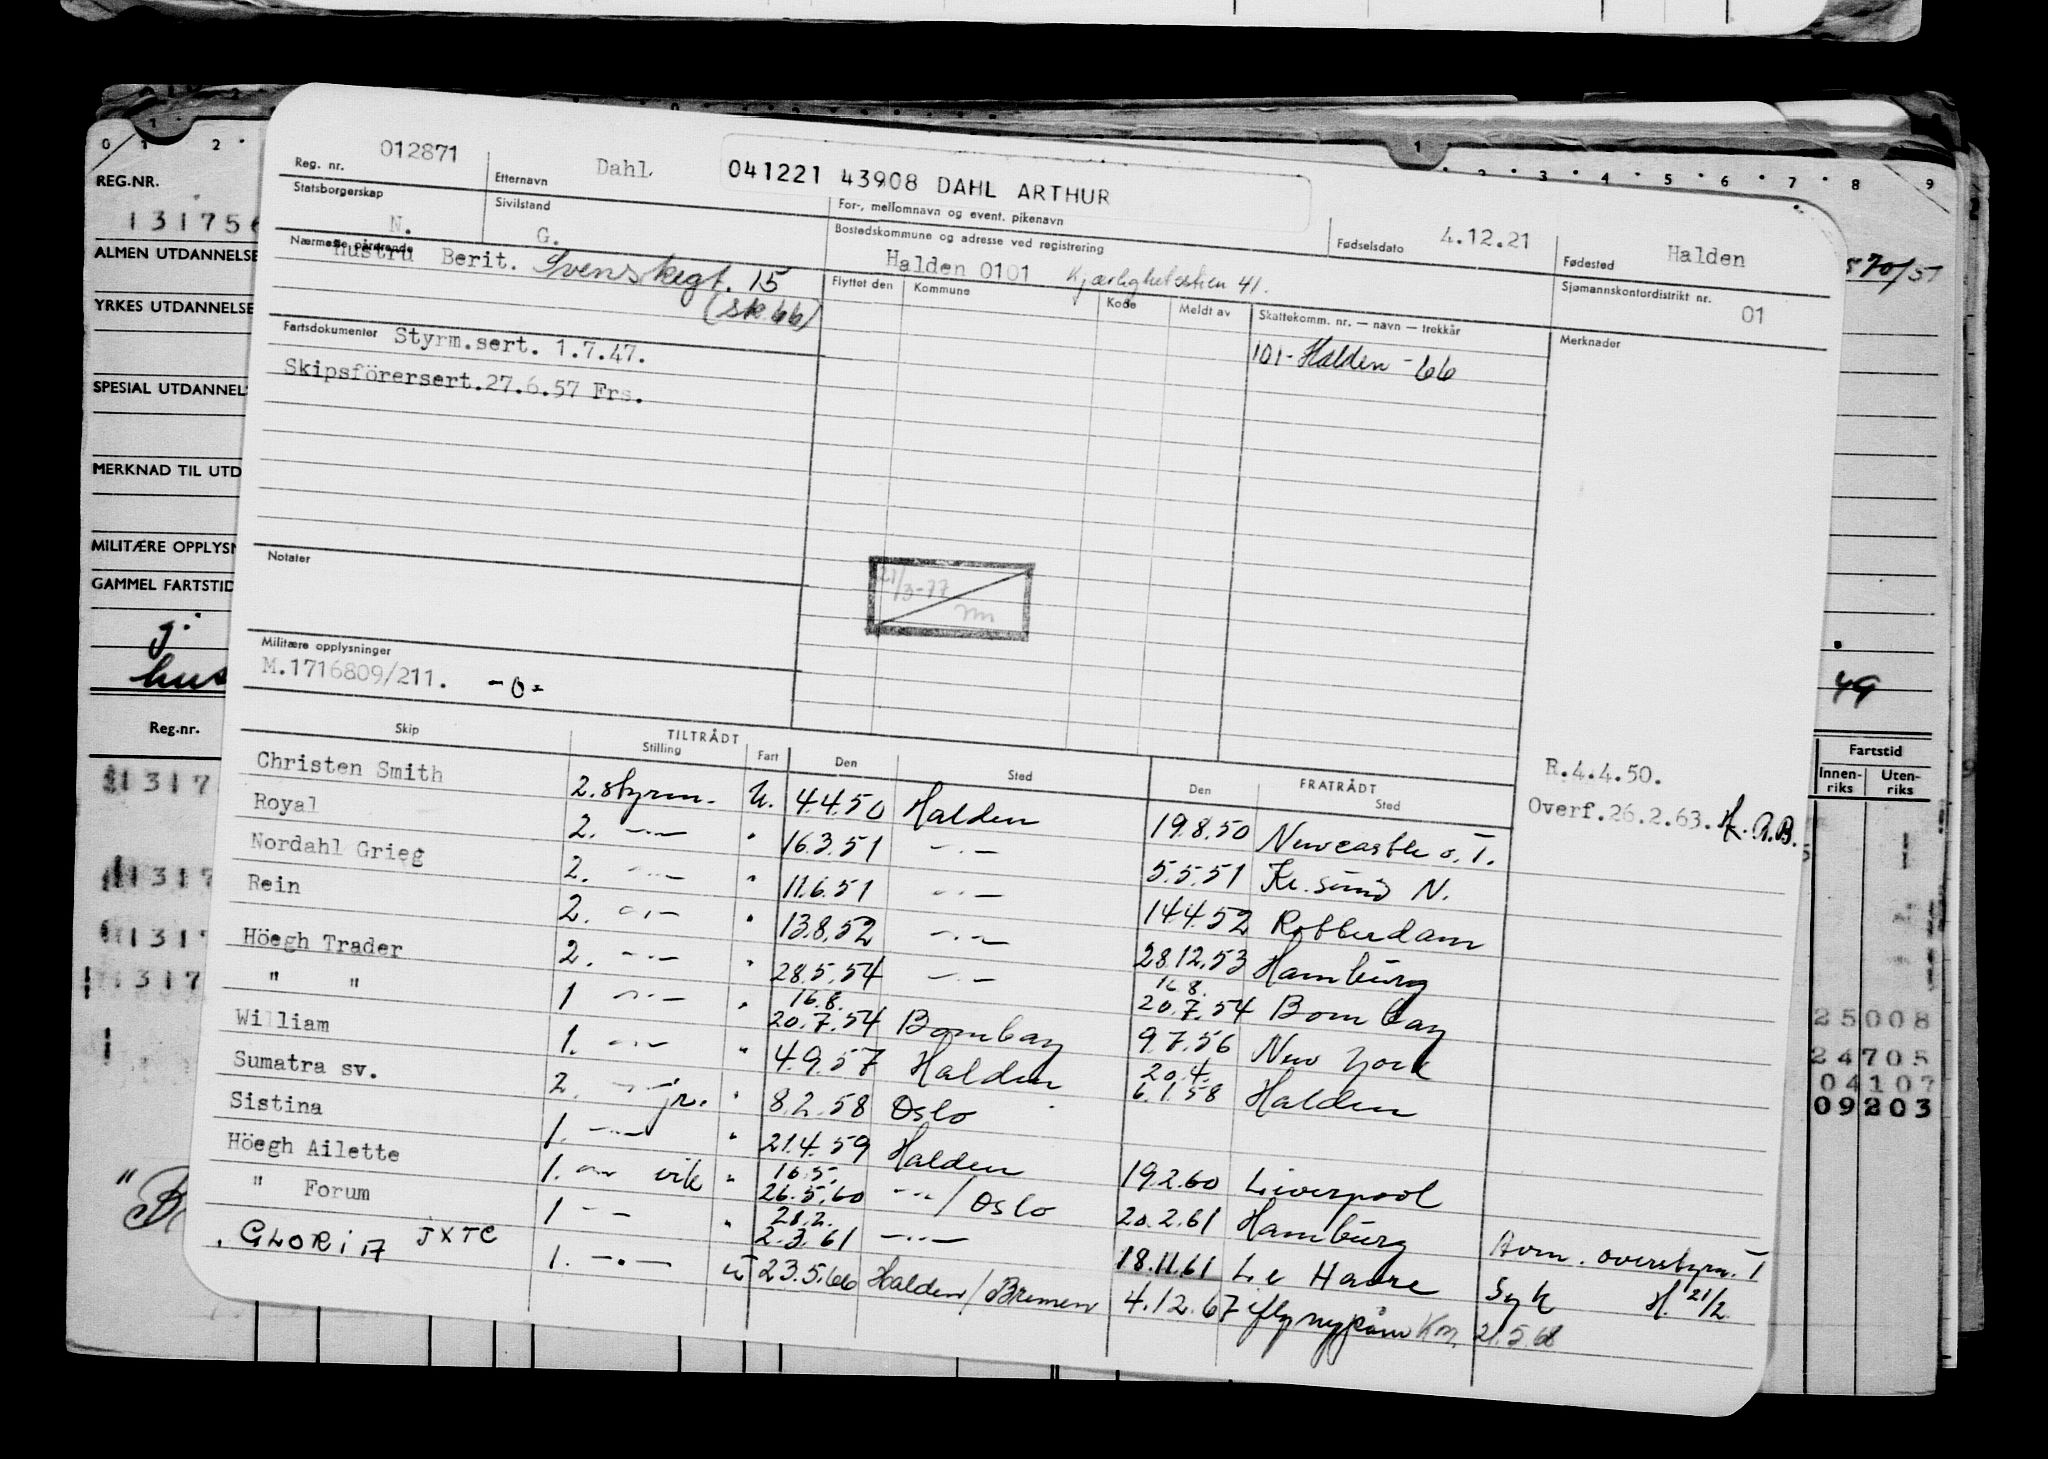 REG.NR.
131756
ALMEN UTDANNELSE
YRKES UTDANNELSE
SPESIAL UTDANNELS
MERKNAD TIL UTD
MILITÆRE OPPLYSN
GAMMEL FARTSTID
Reg.nr.
Reg. nr. 012871
Etternavn Dahl
041221 43908 DAHL ARTHUR
For-, mellomnavn og event. pikenavn
Fødselsdato 4.12.21
Fødested Halden
Statsborgerskap N.
Sivilstand G.
Bostedskommune og adresse ved registrering
Halden 0101 Kjærlighetsstien 41.
Sjømannskontordistrikt nr. 01
Nærmeste pårørende
Hustru Berit. Svenskegt. 15
(sk 66)
Flyttet den Kommune Kode Meldt av Skattekomm. nr. — navn — trekkår Merknader
101-Halden -66
Fartsdokumenter Styrm.sert. 1.7.47.
Skipsförersert.27.6.57 Frs.
Notater
21/3-77
Militære opplysninger
M.1716809/211. -0-
R.4.4.50.
Overf.26.2.63.
Skip TILTRÅDT Stilling Fart Den Sted FRATRÅDT Den Sted
Christen Smith 2.styrm. U. 4.4.50 Halden 19.8.50 Newcastle o.T.
Royal 2. -"- " 16.3.51 -"- 5.5.51 Kr.sund N.
Nordahl Grieg 2. -"- " 11.6.51 -"- 14.4.52 Rotterdam
Rein 2. -"- " 13.8.52 -"- 28.12.53 Hamburg
Höegh Trader 2. -"- " 28.5.54 -"- 16.8. 20.7.54 Bombay
" " 1 -"- " 16.8. 20.7.54 Bombay 9.7.56 New York
William 1. -"- " 4.9.57 Halden 20.4. 6.1.58 Halden
Sumatra sv. 2. -"- jr. " 8.2.58 Oslo
Sistina 1. -"- " 21.4.59 Halden 19.2.60 Liverpool
Höegh Ailette 1. -"- vik " 16.5. 26.5.60 -"- / Oslo 20.2.61 Hamburg Avm. overstyrm. I
" Forum 1 -"- " 28.2. 2.3.61 -"- 18.11.61 Le Havre Syk H. 21/2
GLORIA JXTC 1. -"- U 23.5.66 Halden/Bremen 4.12.67 Km. 21.5.68
Fartstid
Innen-riks Uten-riks
25008
24705
04107
09203